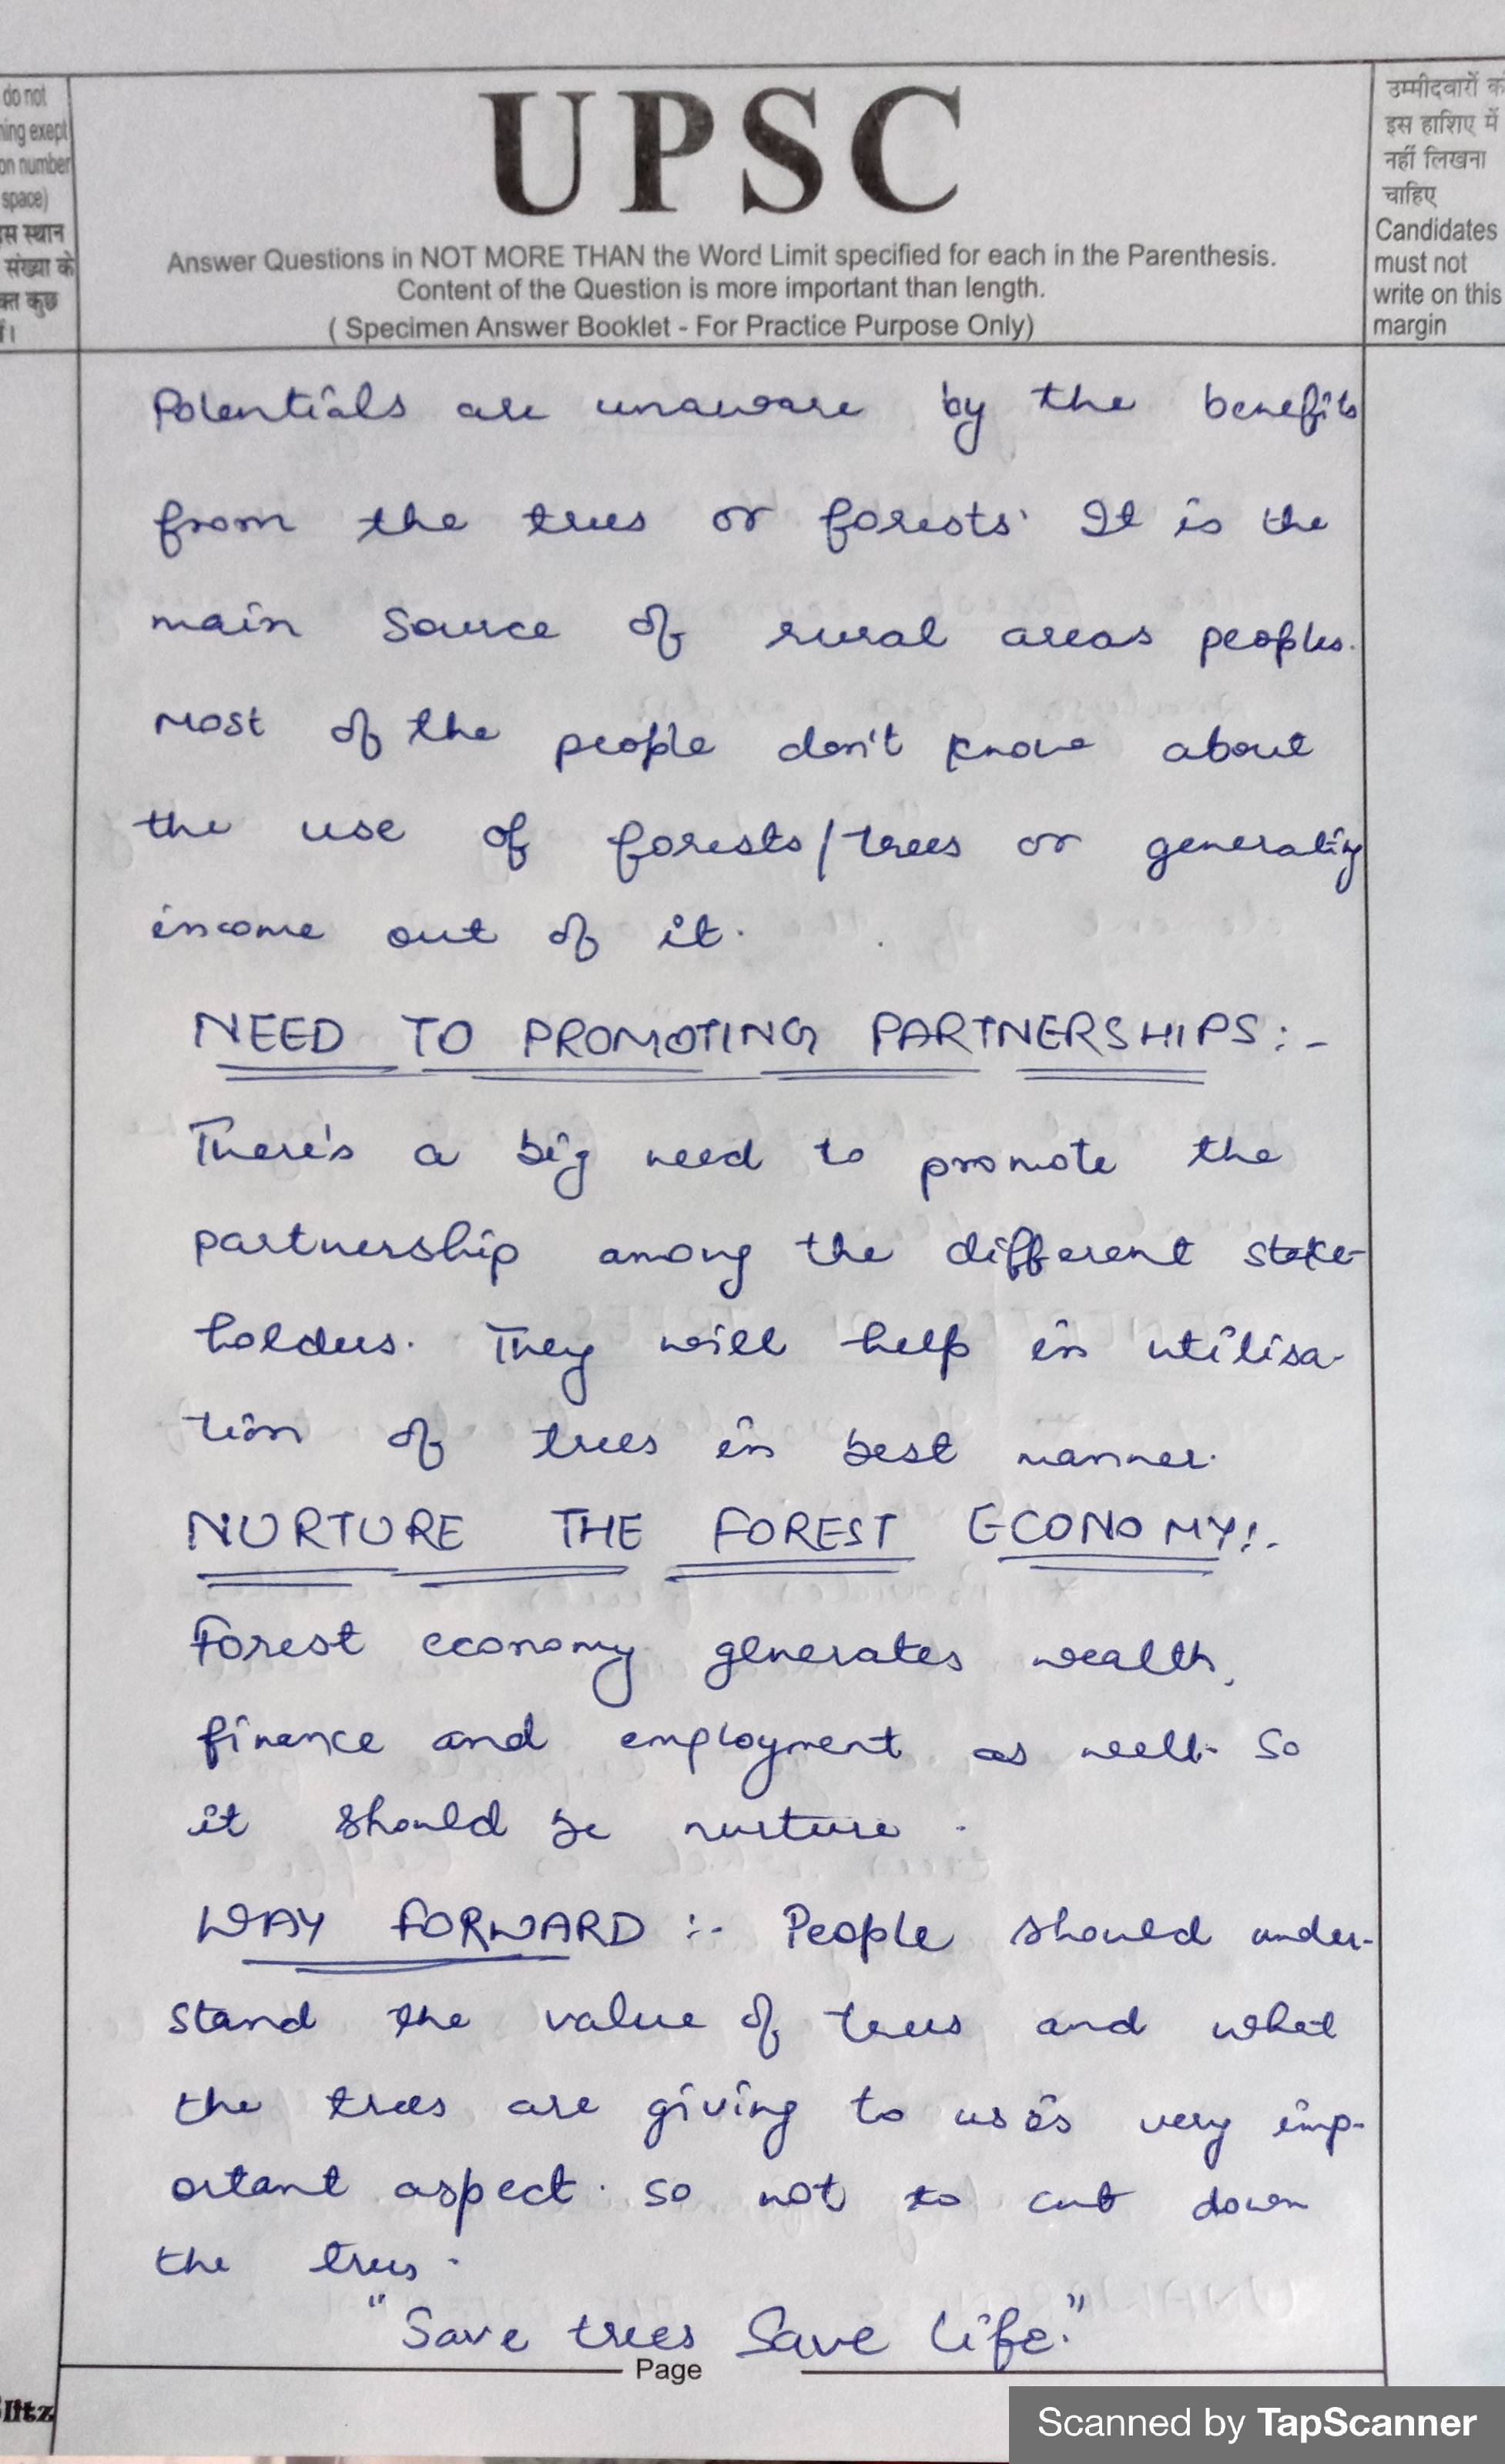 do not
ning exept
on number
space)
इस स्थान
संख्या के
क्त कुछ
UPSC
Answer Questions in NOT MORE THAN the Word Limit specified for each in the Parenthesis.
Content of the Question is more important than length.
( Specimen Answer Booklet - For Practice Purpose Only)
उम्मीदवारों को
इस हाशिए में
नहीं लिखना
चाहिए
Candidates
must not
write on this
margin
Potentials are unaware by the benefits
from the trees or forests. It is the
main source of rural areas peoples.
Most of the people don't know about
the use of forests/trees or generating
income out of it.
NEED TO PROMOTING PARTNERSHIPS:-
There's a big need to promote the
partnership among the different stake-
holders. They will help in utilisa-
tion of trees in best manner.
NURTURE THE FOREST ECONOMY:-
Forest economy generates wealth,
finance and employment as well. So
it should be nurture.
WAY FORWARD :- People should under-
stand the value of trees and what
the trees are giving to us is very imp-
ortant aspect. so not to cut down
the trees.
"Save trees Save life."
Page
litz
Scanned by TapScanner